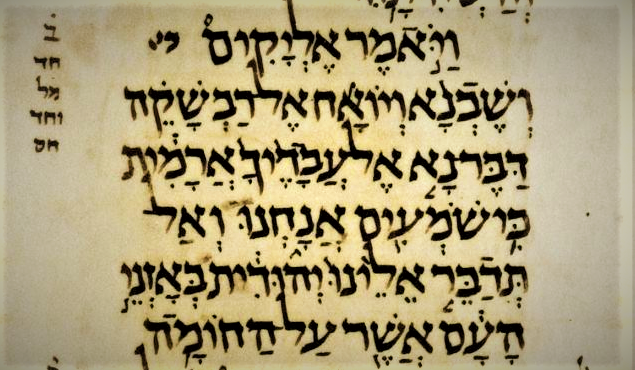 וַיֹּאמֶר אֶלְיָקִים
וְשֶׁבְנָא וְיוֹאָח אֶל רַבְשָׁקֵה
דַּבֶּר נָא אֶל עֲבָדֶיךָ אֲרָמִית
כִּי שֹׁמְעִים אֲנָחְנוּ וְאַל
תְּדַבֵּר אֵלֵינוּ יְהוּדִית בְּאָזְנֵי
הָעָם אֲשֶׁר עַל הַחוֹמָה
ב̇
חד
מל
וחד
חס